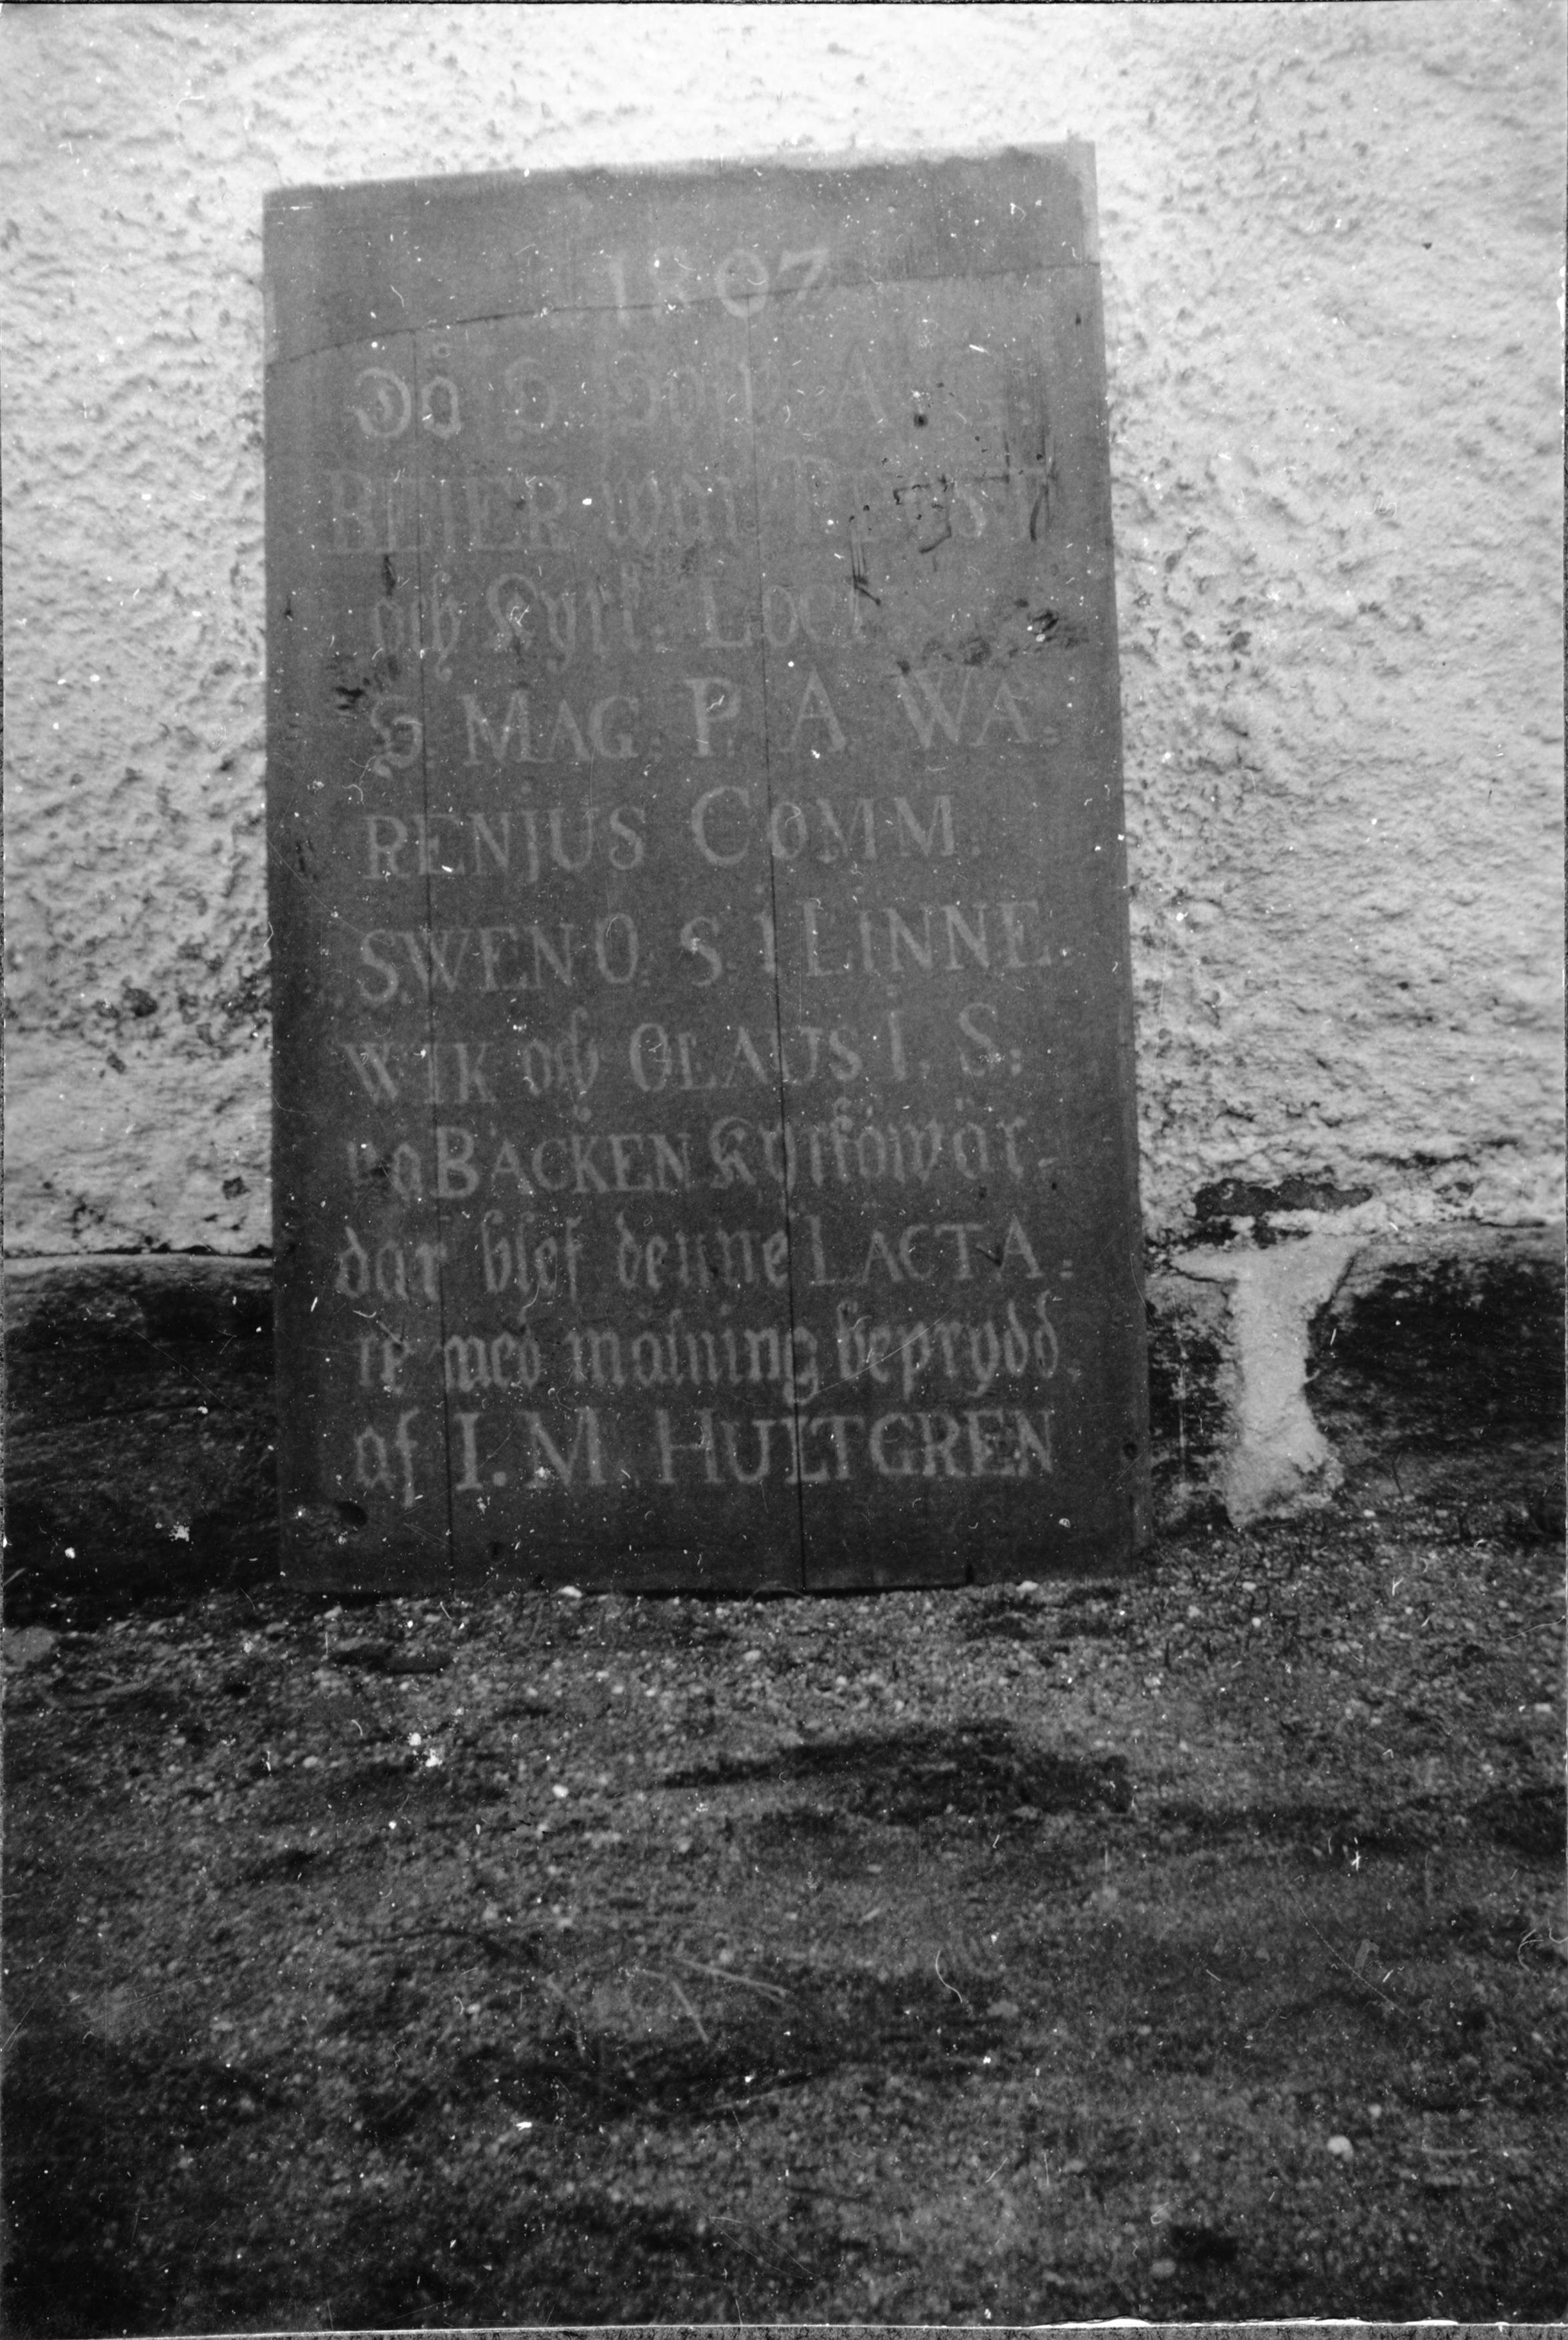 1807
Då H. Dokt. A.
BEIJER war
och Kyrk.
H. MAG. P. A. WA-
RENJUS COMM.
SWEN O. S. i LiNNE
WIK och OLAUS I. S.
BÄCKEN Kyrkowär-
dar blef denne LACTA-
re med målning beprydd.
af I. M. HULTGREN